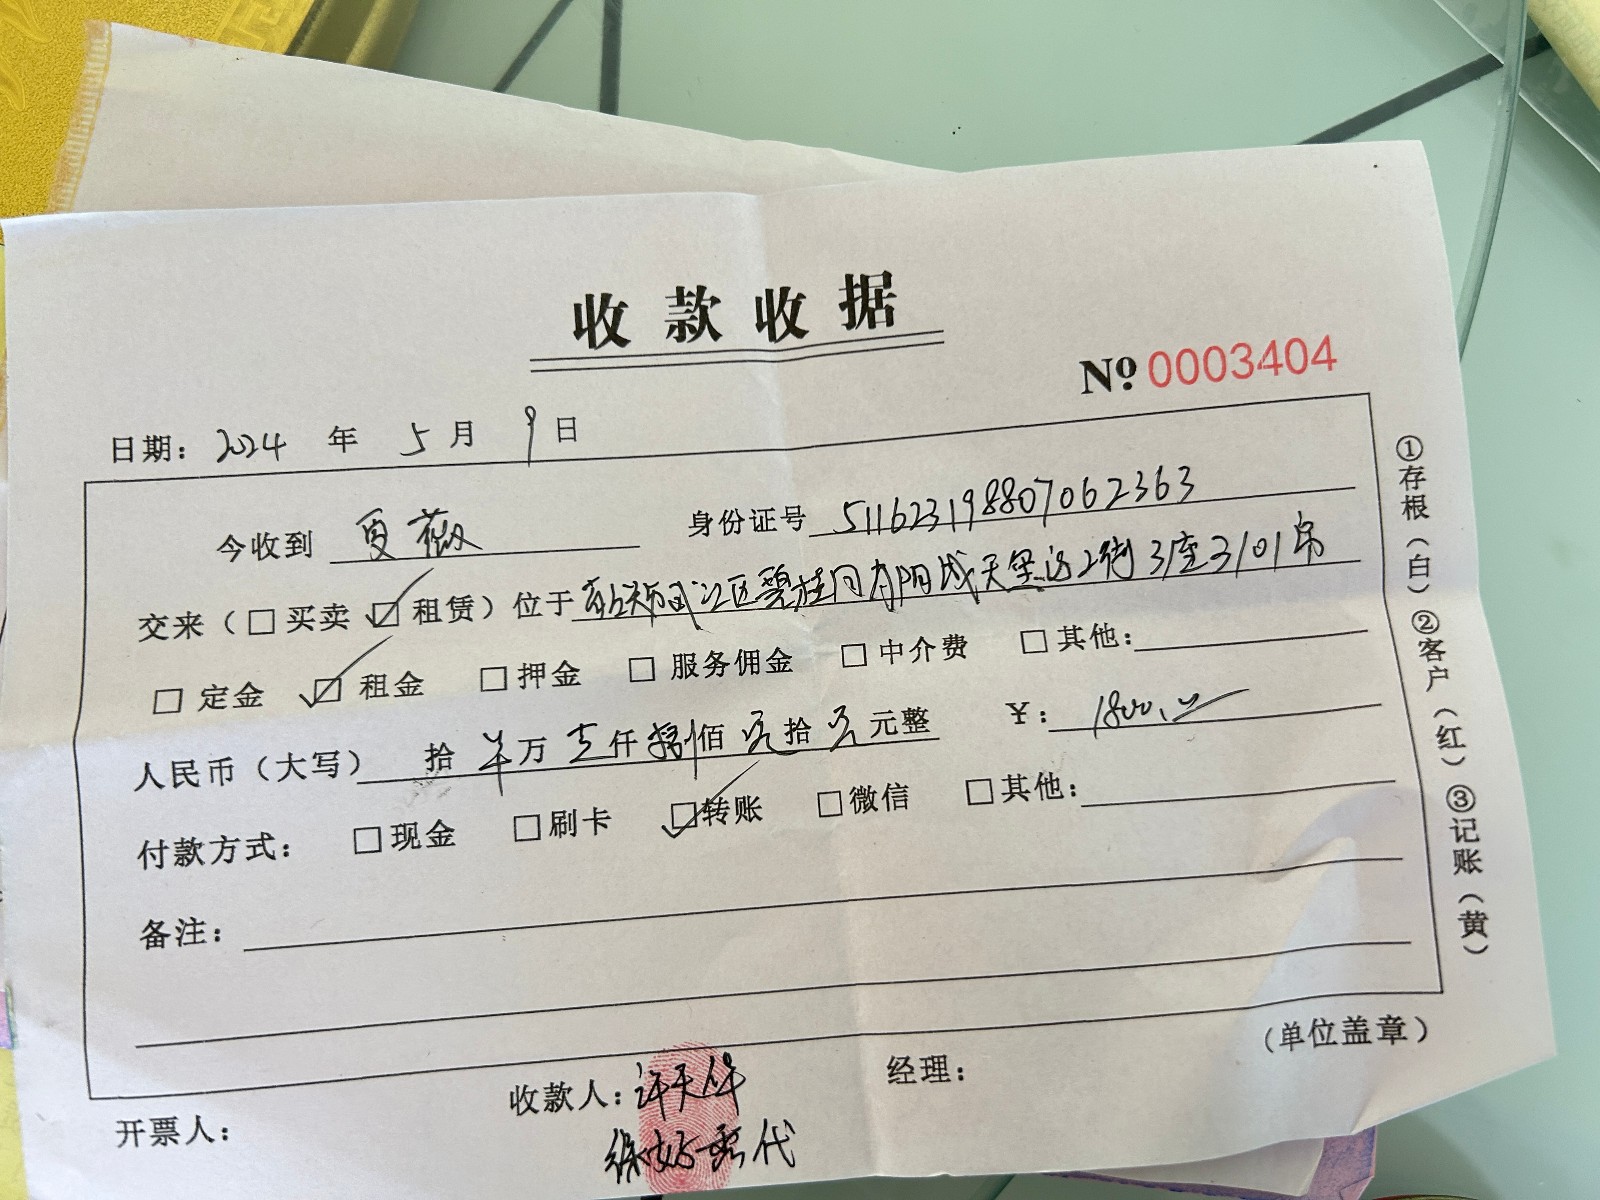 收款收据
Nº 0003404
日期: 2024 年 5 月 9 日
今收到 夏薇 身份证号 511623198807062363
交来(□买卖 ☑租赁)位于 韶关市武江区碧桂园太阳城天玺湾2街3座3101房
□定金 ☑租金 □押金 □服务佣金 □中介费 □其他:
人民币(大写) 拾 羊万 壹仟 捌佰 元拾 元元整 ¥: 1800.00
付款方式: □现金 □刷卡 ☑转账 □微信 □其他:
备注:
(单位盖章)
开票人: 收款人: 许天华 经理:
徐好 代
①存根(白)②客户(红)③记账(黄)